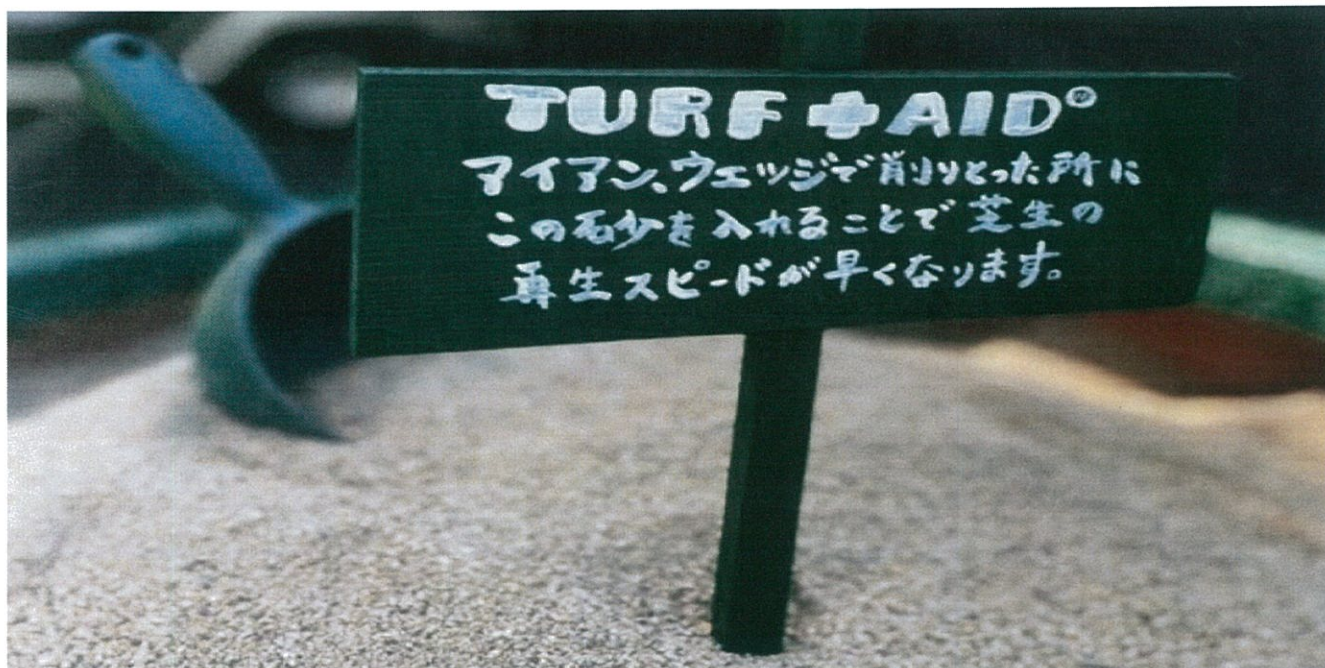 TURF✚AID®
アイアン、ウェッジで削りとった所に
この砂を入れることで芝生の
再生スピードが早くなります。